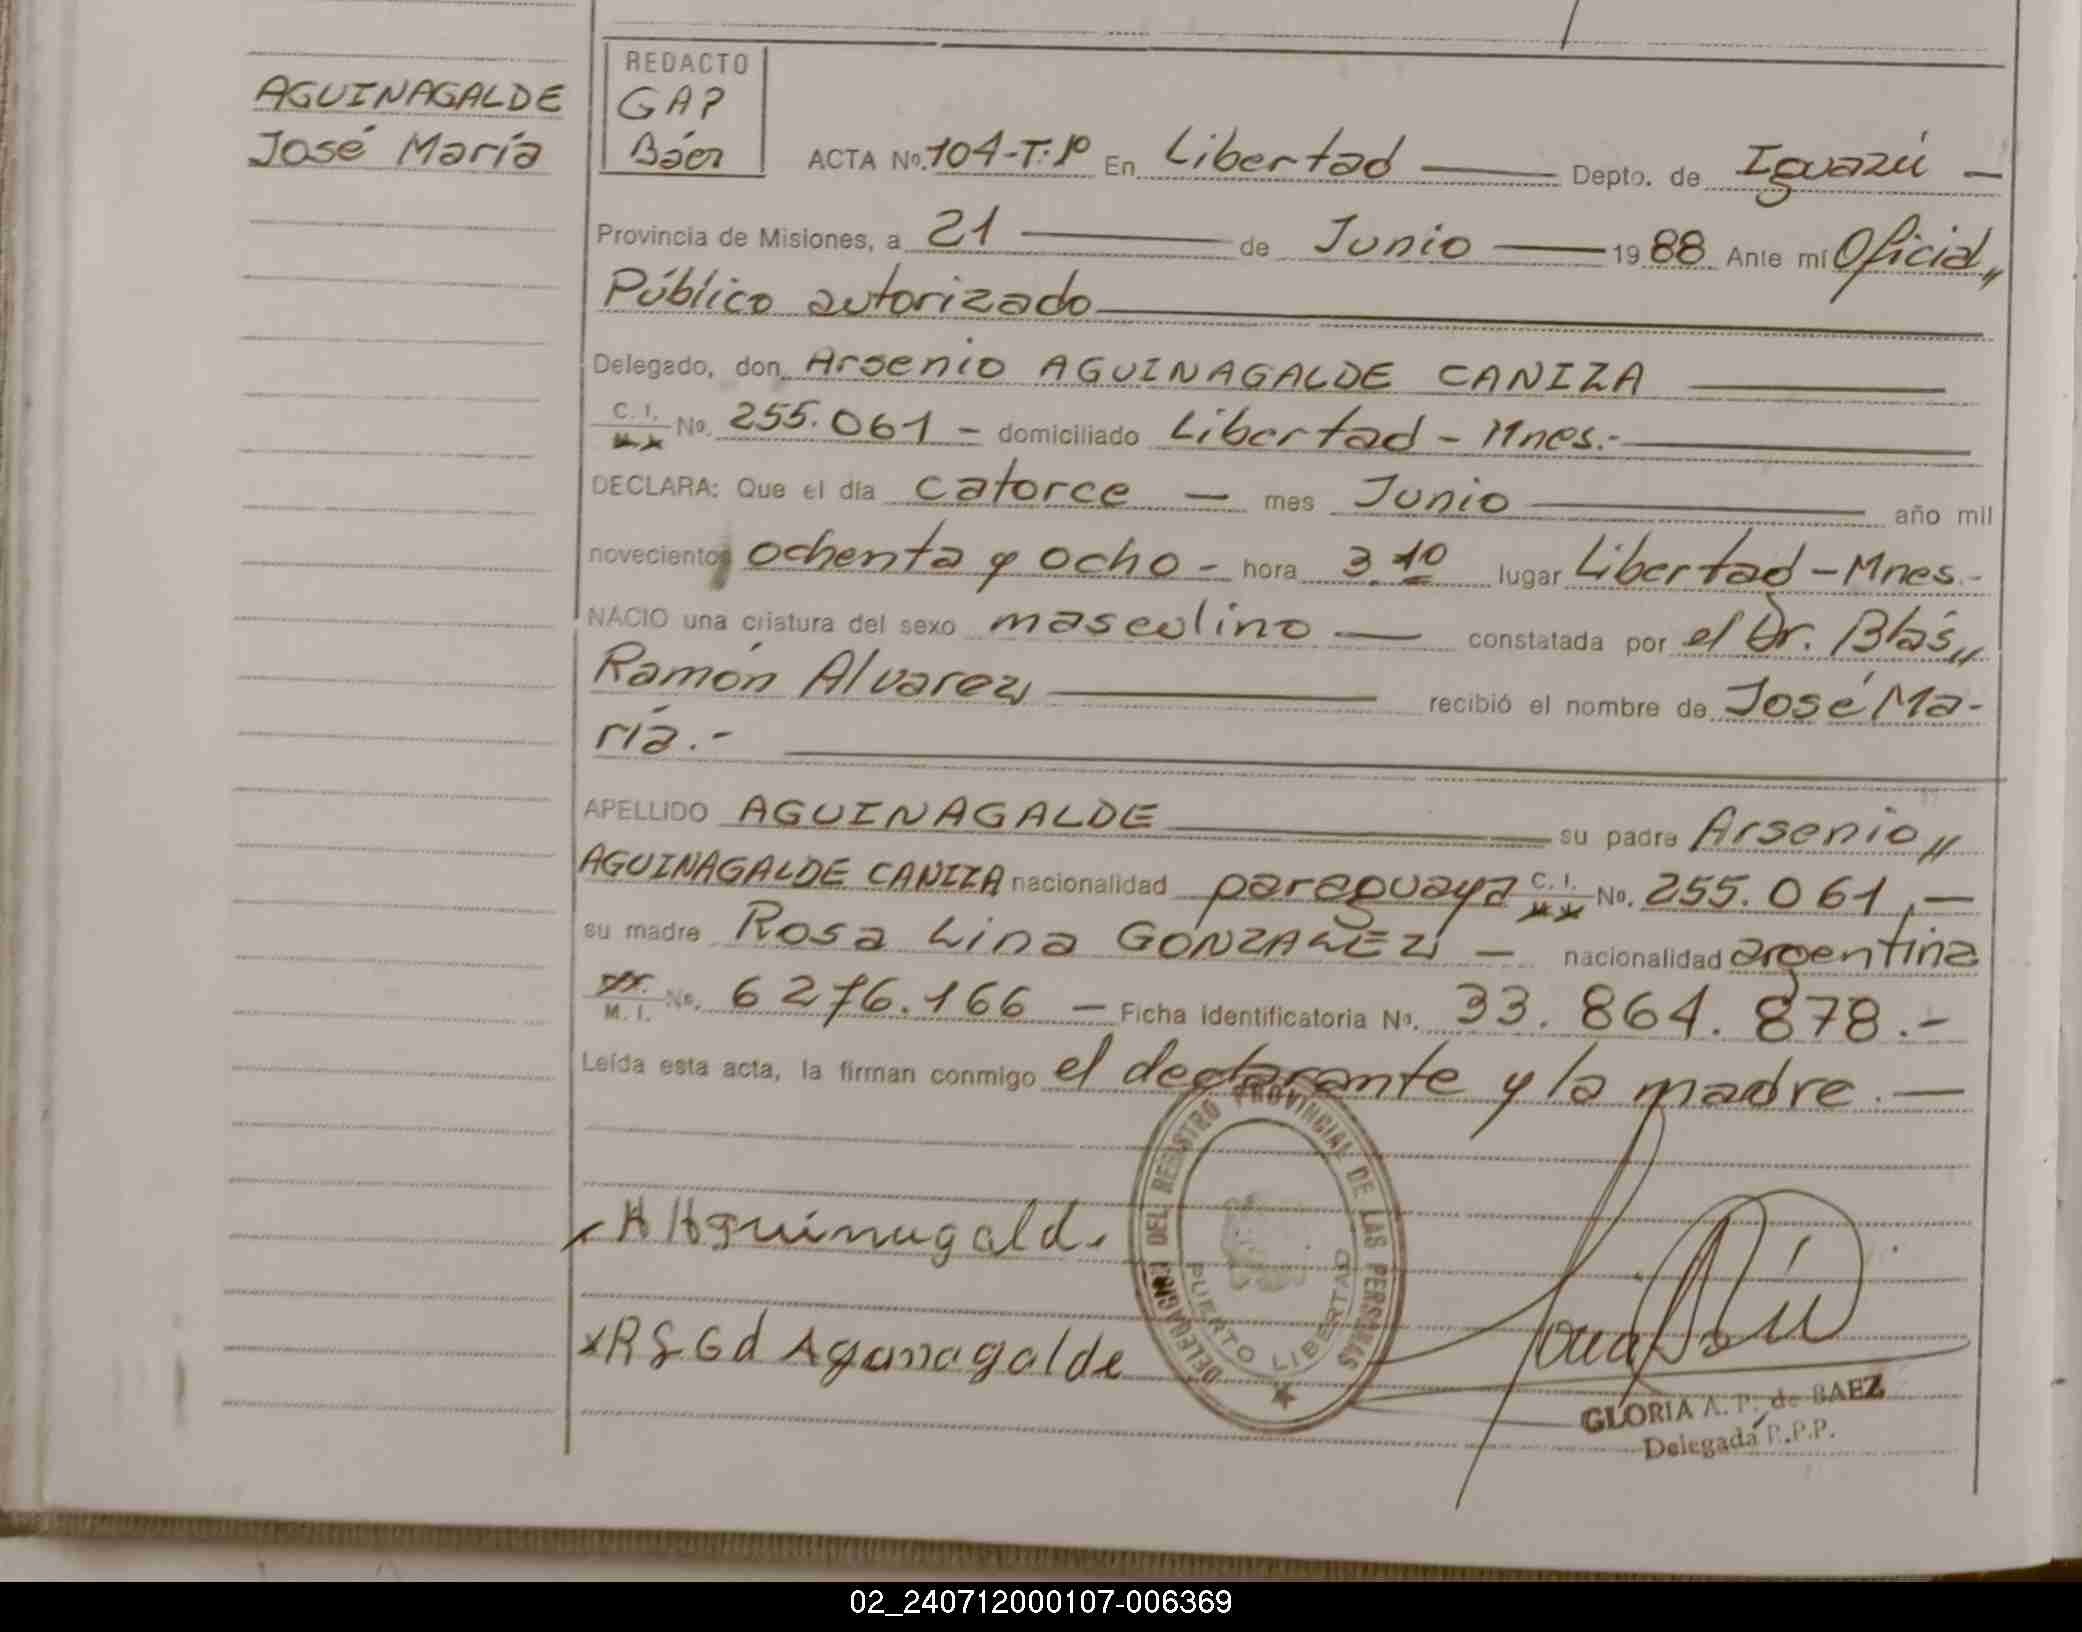 AGUINAGALDE
José María
REDACTO
GAP
Báez
ACTA No. 104-T:1º En Libertad Depto. de Iguazú
Provincia de Misiones, a 21 de Junio 1988 Ante mí Oficial,,
Público autorizado
Delegado, don Arsenio AGUINAGALDE CANIZA
C. I. No. 255.061 - domiciliado Libertad - Mnes.-
DECLARA: Que el día catorce - mes Junio año mil
novecientos ochenta y ocho - hora 3.10 lugar Libertad - Mnes.-
NACIO una criatura del sexo masculino constatada por el Dr. Blás,,
Ramón Alvarez recibió el nombre de José Ma-
ría.-
APELLIDO AGUINAGALDE su padre Arsenio,,
AGUINAGALDE CANIZA nacionalidad paraguaya C. I. No. 255.061.-
su madre Rosa Lina GONZALEZ - nacionalidad argentina
M. I. No. 6276.166 - Ficha identificatoria No. 33.864.878.-
Leída esta acta, la firman conmigo el declarante y la madre.-
DELEGACION DEL REGISTRO PROVINCIAL DE LAS PERSONAS
PUERTO LIBERTAD
GLORIA A. P. de BAEZ
Delegada P.P.P.
02_240712000107-006369